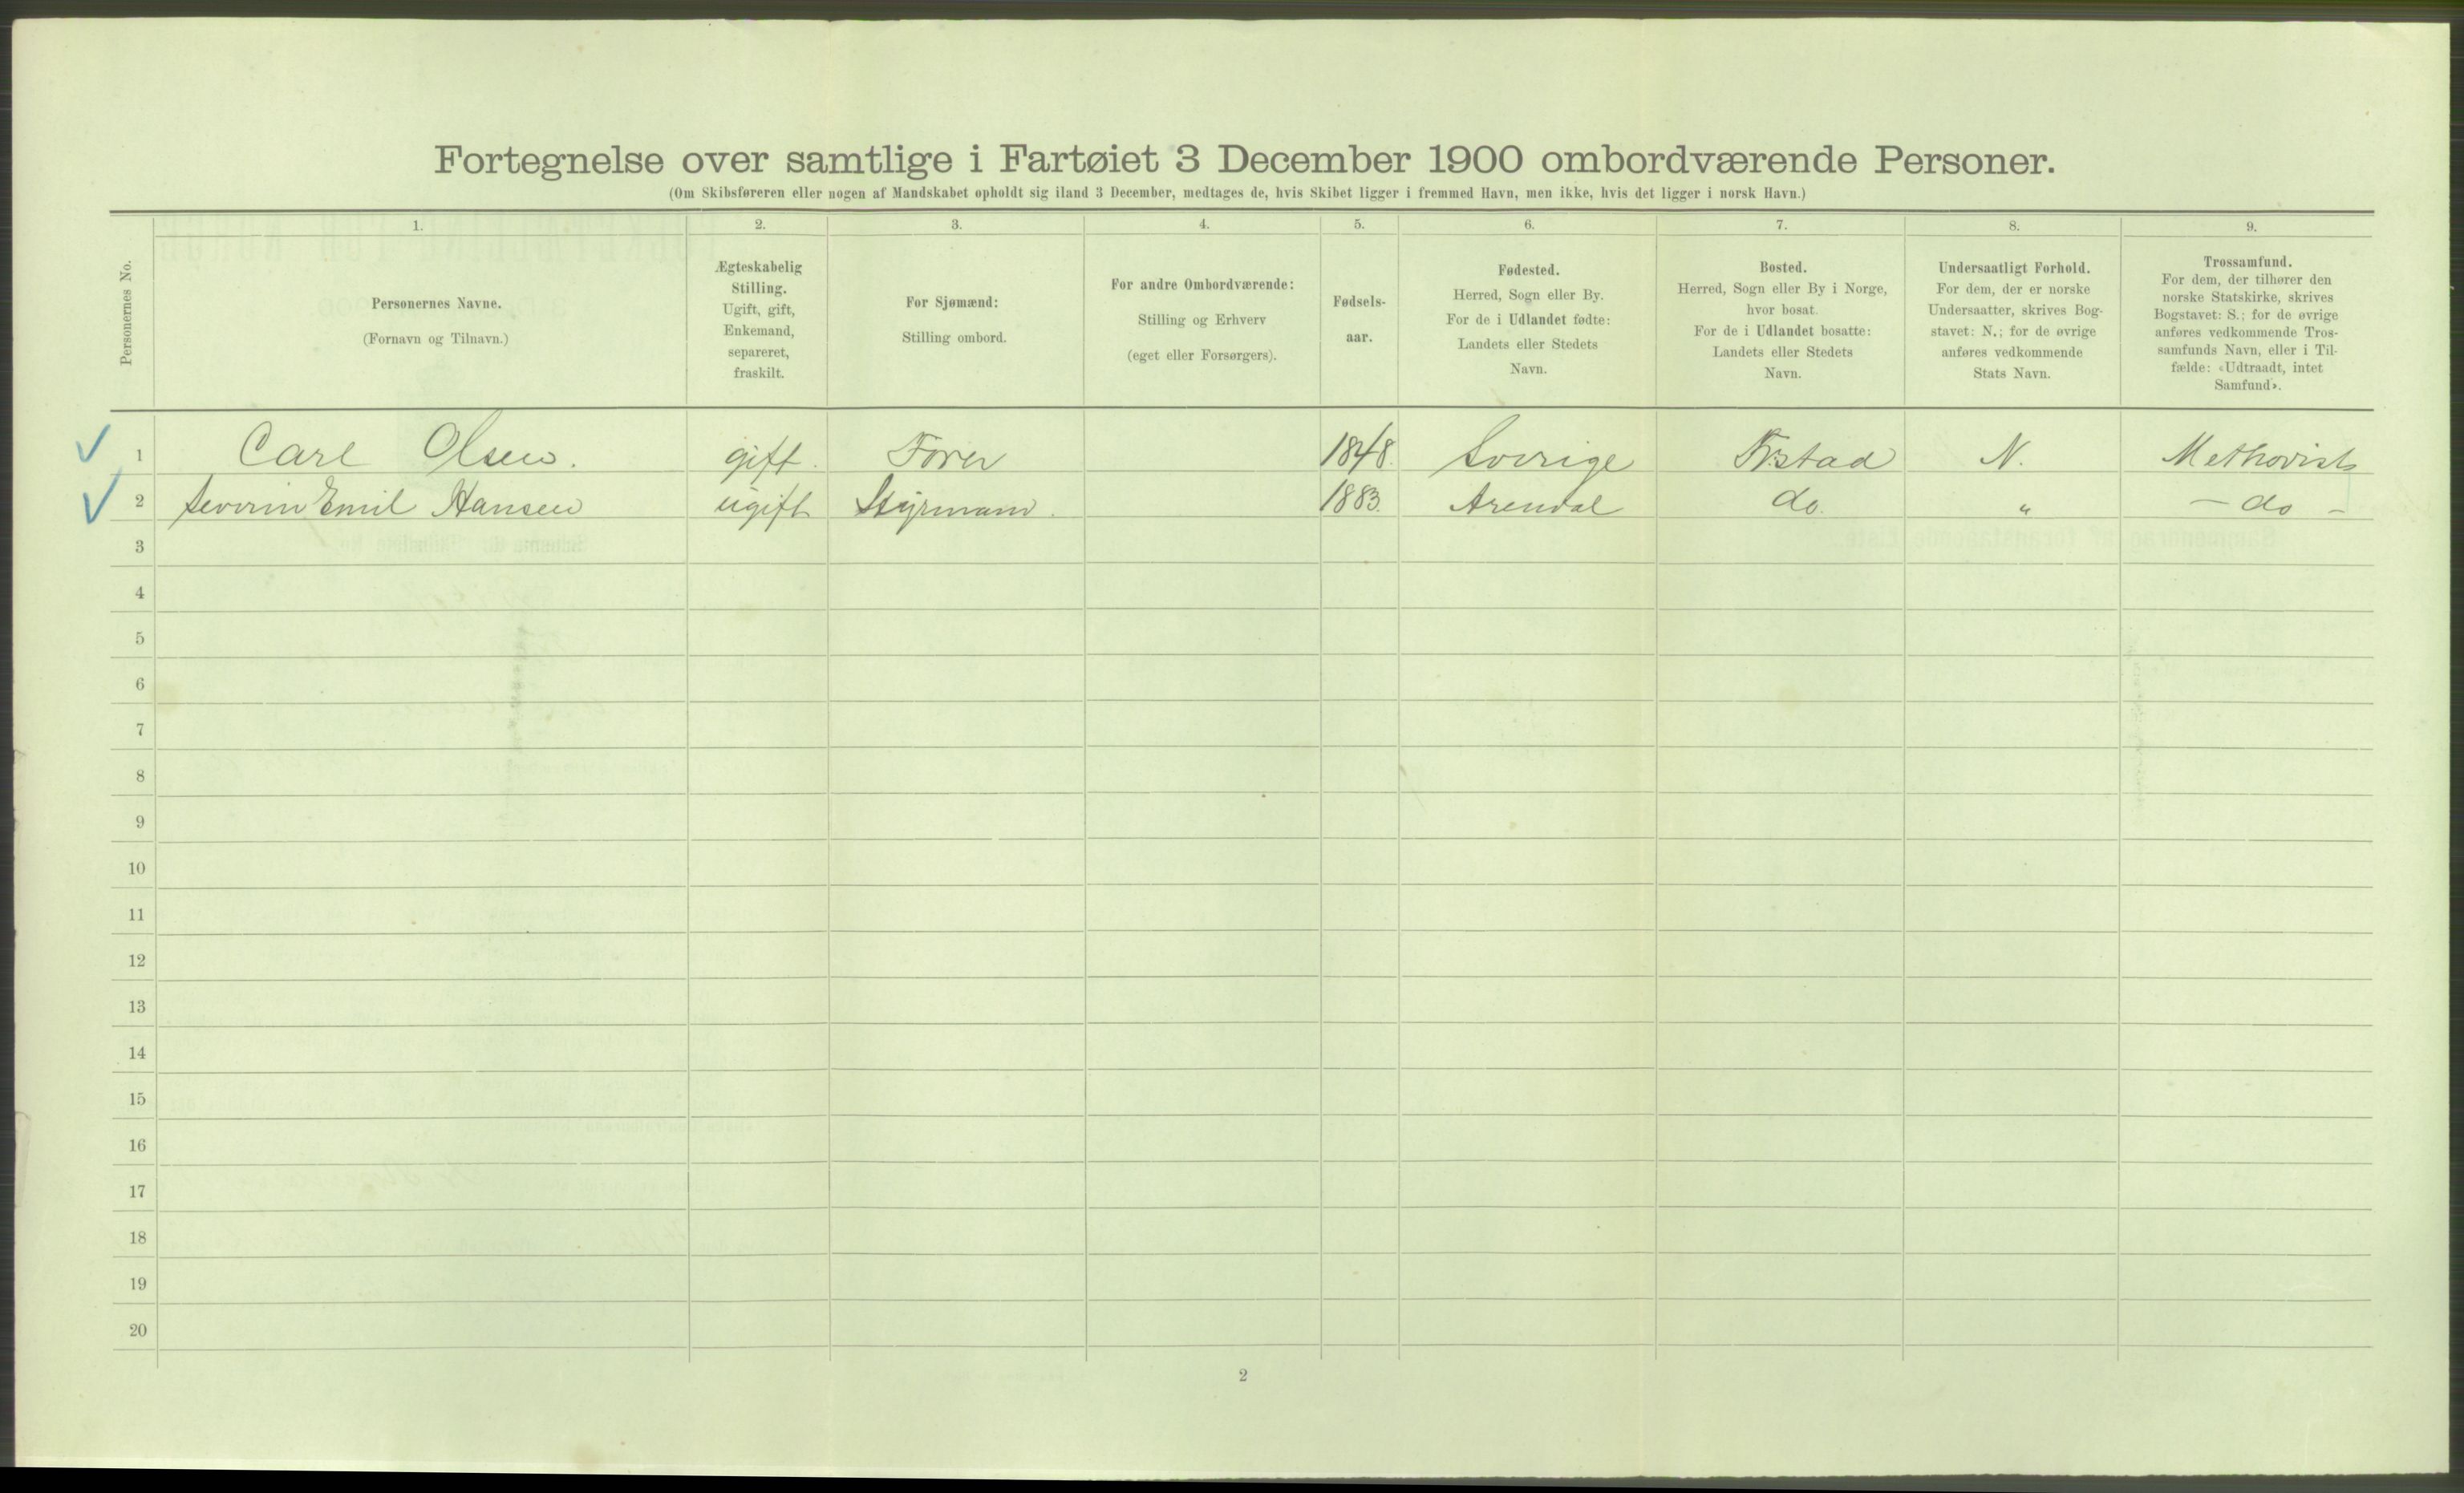 Fortegnelse over samtlige i Fartøiet 3 December 1900 ombordværende Personer.
(Om Skibsføreren eller nogen af Mandskabet opholdt sig iland 3 December, medtages de, hvis Skibet ligger i fremmed Havn, men ikke, hvis det ligger i norsk Havn.)
Personernes No.
1.
Personernes Navne.
(Fornavn og Tilnavn.)
2.
Ægteskabelig
Stilling.
Ugift, gift,
Enkemand,
separeret,
fraskilt.
3.
For Sjømænd:
Stilling ombord.
4.
For andre Ombordværende:
Stilling og Erhverv
(eget eller Forsørgers).
5.
Fødsels-
aar.
6.
Fødested.
Herred, Sogn eller By.
For de i Udlandet fødte:
Landets eller Stedets
Navn.
7.
Bosted.
Herred, Sogn eller By i Norge,
hvor bosat.
For de i Udlandet bosatte:
Landets eller Stedets
Navn.
8.
Undersaatligt Forhold.
For dem, der er norske
Undersaatter, skrives Bog-
stavet: N.; for de øvrige
anføres vedkommende
Stats Navn.
9.
Trossamfund.
For dem, der tilhører den
norske Statskirke, skrives
Bogstavet: S.; for de øvrige
anføres vedkommende Tros-
samfunds Navn, eller i Til-
fælde: «Udtraadt, intet
Samfund».
1 Carl Olsen. gift. Fører 1848. Sverige Fr.stad N. Methodist
2 Severin Emil Hansen ugift Styrmand. 1883. Arendal do. " - do -
3
4
5
6
7
8
9
10
11
12
13
14
15
16
17
18
19
20
2